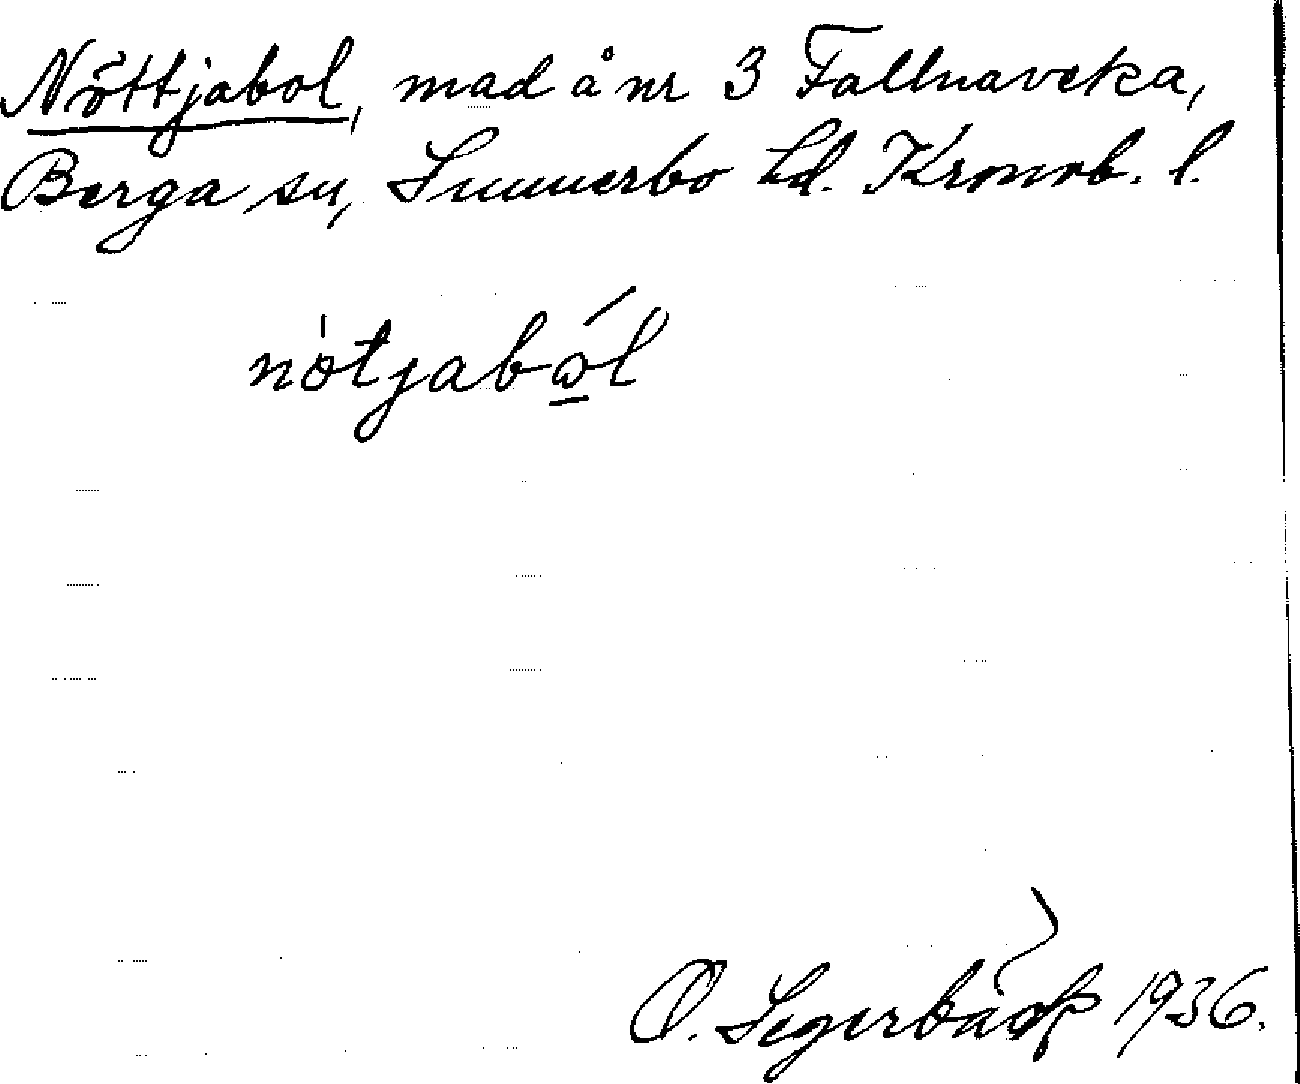 Nöttjabol, mad å nr 3 Fallnaveka,
Berga sn, Sunnerbo hd. Kronob. l.
nòtjabώ̲l
O. Segerbäck 1936.